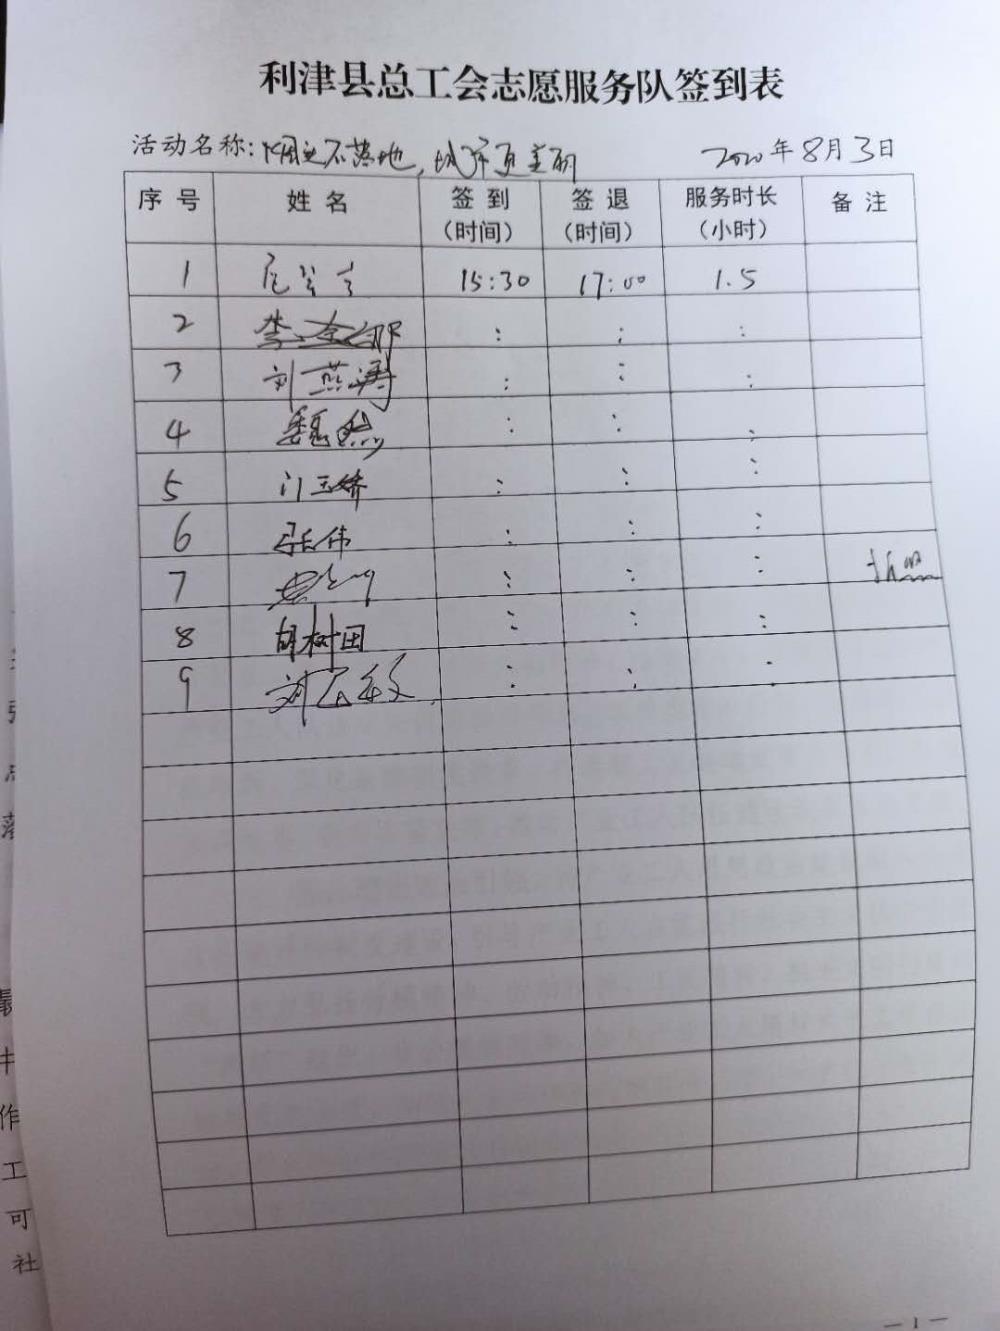 利津县总工会志愿服务队签到表
活动名称:烟头不落地,城市更美丽 2020年8月3日
序号 姓名 签到(时间) 签退(时间) 服务时长(小时) 备注
1 15:30 17:00 1.5
2 : : :
3 刘燕涛 : : :
4 魏然 : : :
5 门玉娇 : : :
6 张伟 : : :
7 : : :
8 胡树田 : : :
9 : : :
— 1 —
落
最
作
工
可
社